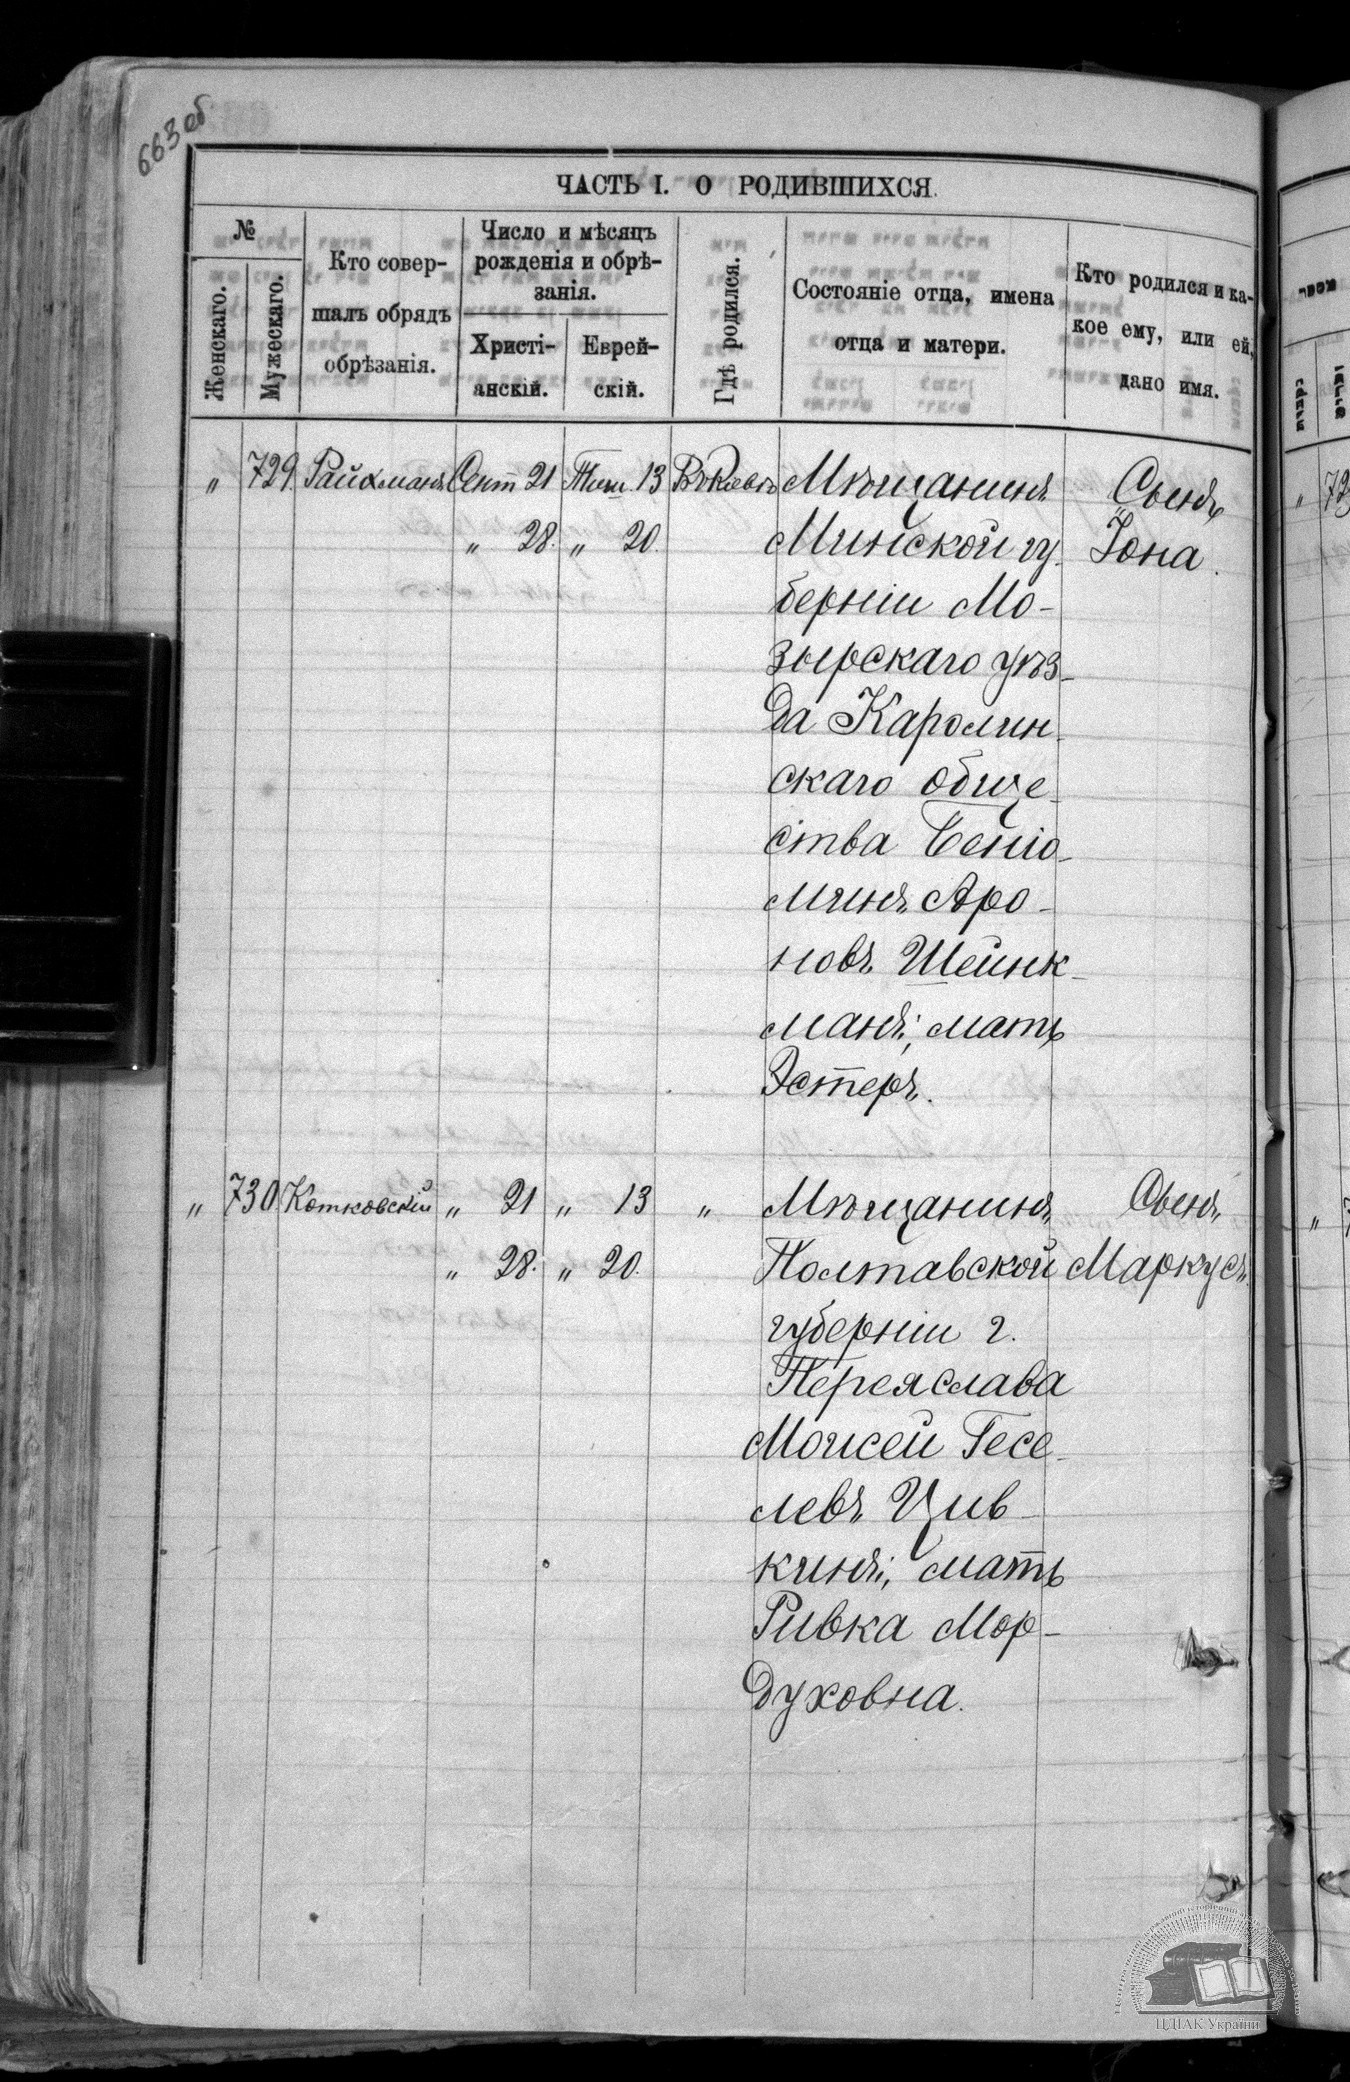 663 об
ЧАСТЬ I. О РОДИВШИХСЯ.
№
Женскаго.
Мужескаго.
Кто совер-
шалъ обрядъ
обрѣзанія.
Число и мѣсяцъ
рожденія и обрѣ-
занія.
Христі-
анскій.
Еврей-
скій.
Гдѣ родился.
Состояніе отца, имена
отца и матери.
Кто родился и ка-
кое ему, или ей,
дано имя.
„ 729. Райхманъ Сент 21 Тиш. 13 Въ Кіевѣ Мѣщанинъ Сынъ
„ 28. „ 20. Минской гу- Іона.
берніи Мо-
зырскаго уѣз-
да Каролин-
скаго обще-
ства Беніо-
минъ Аро-
новъ Шейнк-
манъ; мать
Эстеръ.
„ 730 Котковскій „ 21 „ 13 „ Мѣщанинъ Сынъ
„ 28. „ 20. Полтавской Маркусъ.
губерніи г.
Переяслава
Моисей Гесе-
левъ Цив-
кинъ; мать
Ривка Мор-
духовна.
ЦДІАК України